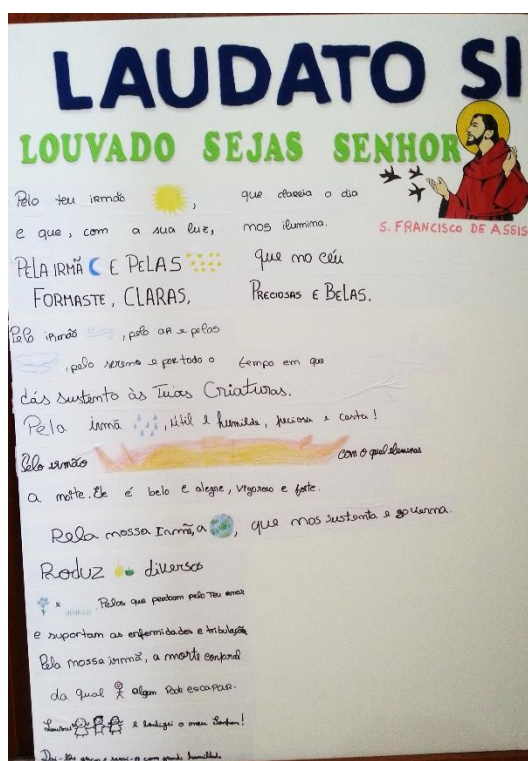 LAUDATO SI
LOUVADO SEJAS SENHOR
S. FRANCISCO DE ASSIS
Pelo teu irmão , que clareia o dia
e que, com a sua luz, nos ilumina.
PELA IRMÃ E PELAS que no céu
FORMASTE, CLARAS, PRECIOSAS E BELAS.
Pelo irmão , pelo ar e pelas
, pelo sereno e por todo o tempo em que
dás sustento às Tuas Criaturas.
Pela irmã , útil e humilde, preciosa e casta!
Pelo irmão com o qual iluminas
a noite. Ele é belo e alegre, vigoroso e forte.
Pela nossa Irmã, a , que nos sustenta e governa.
Produz diversos
e . Pelos que perdoam pelo Teu amor
e suportam as enfermidades e tribulação
Pela nossa irmã, a morte corporal
da qual algem Pode escapar.
Louvai e bendizei o meu Senhor!